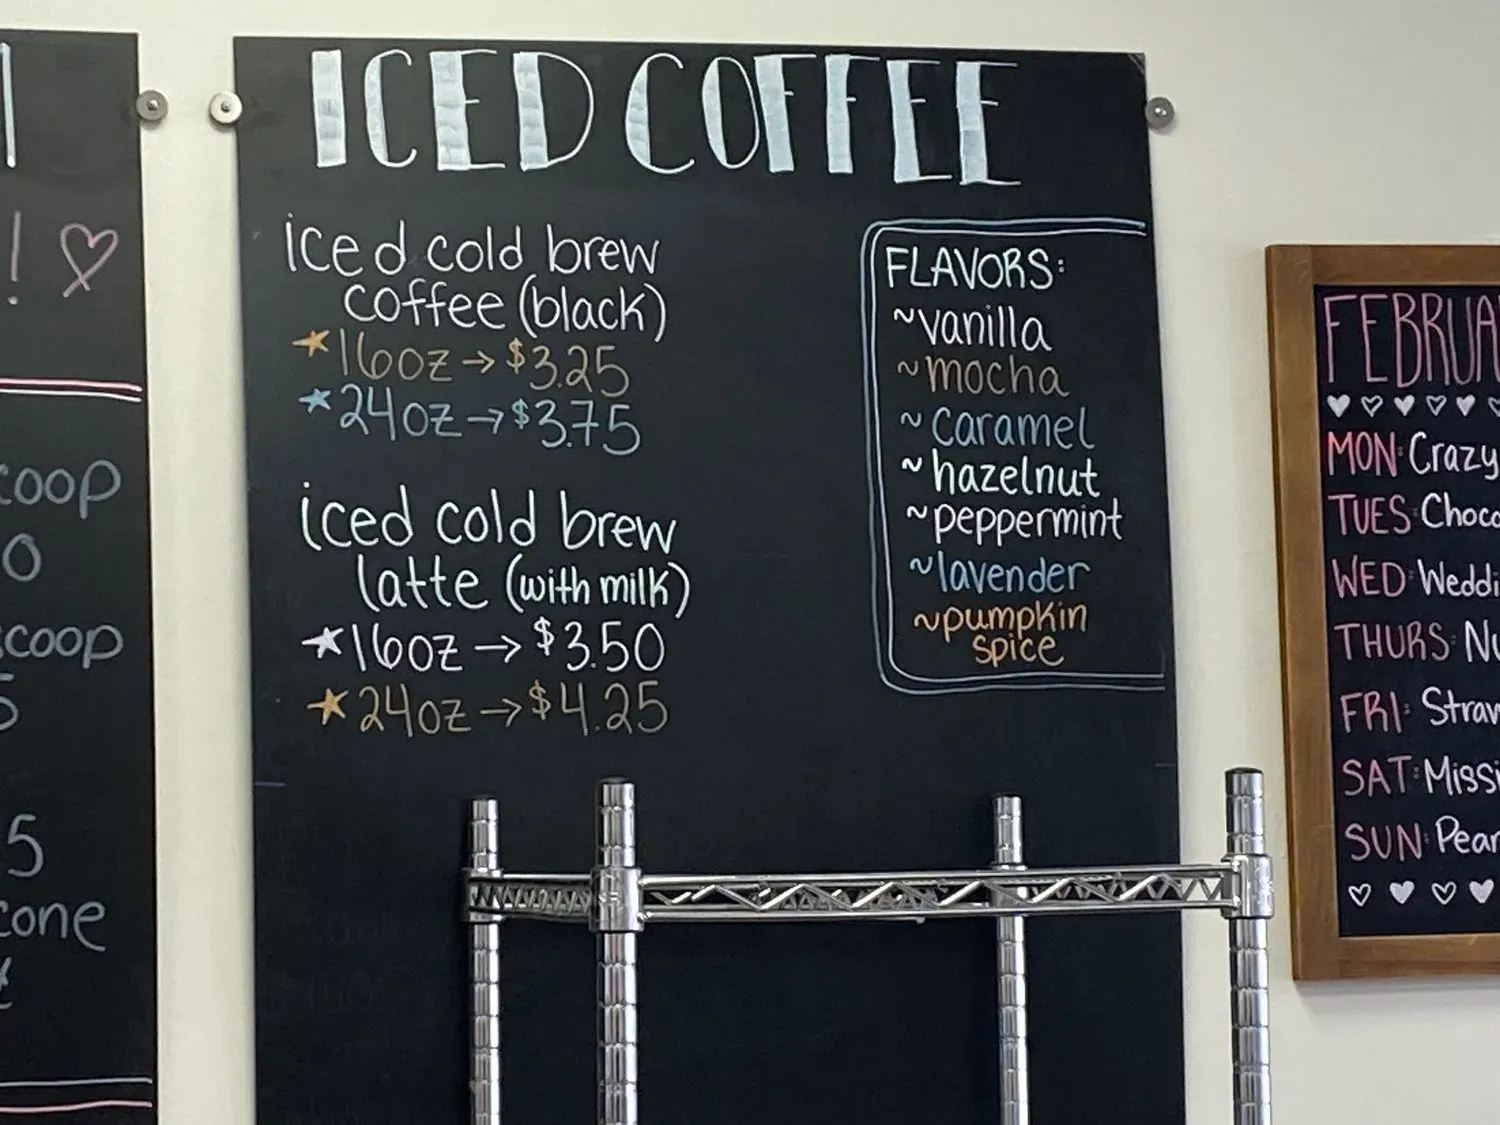 ICED COFFEE
iced cold brew
coffee (black)
16oz → $3.25
24oz → $3.75
iced cold brew
latte (with milk)
16oz → $3.50
24oz → $4.25
FLAVORS:
~vanilla
~mocha
~caramel
~hazelnut
~peppermint
~lavender
~pumpkin
spice
!
coop
0
scoop
5
5
cone
MON: Crazy
TUES:
WED:
THURS:
FRI:
SAT:
SUN: